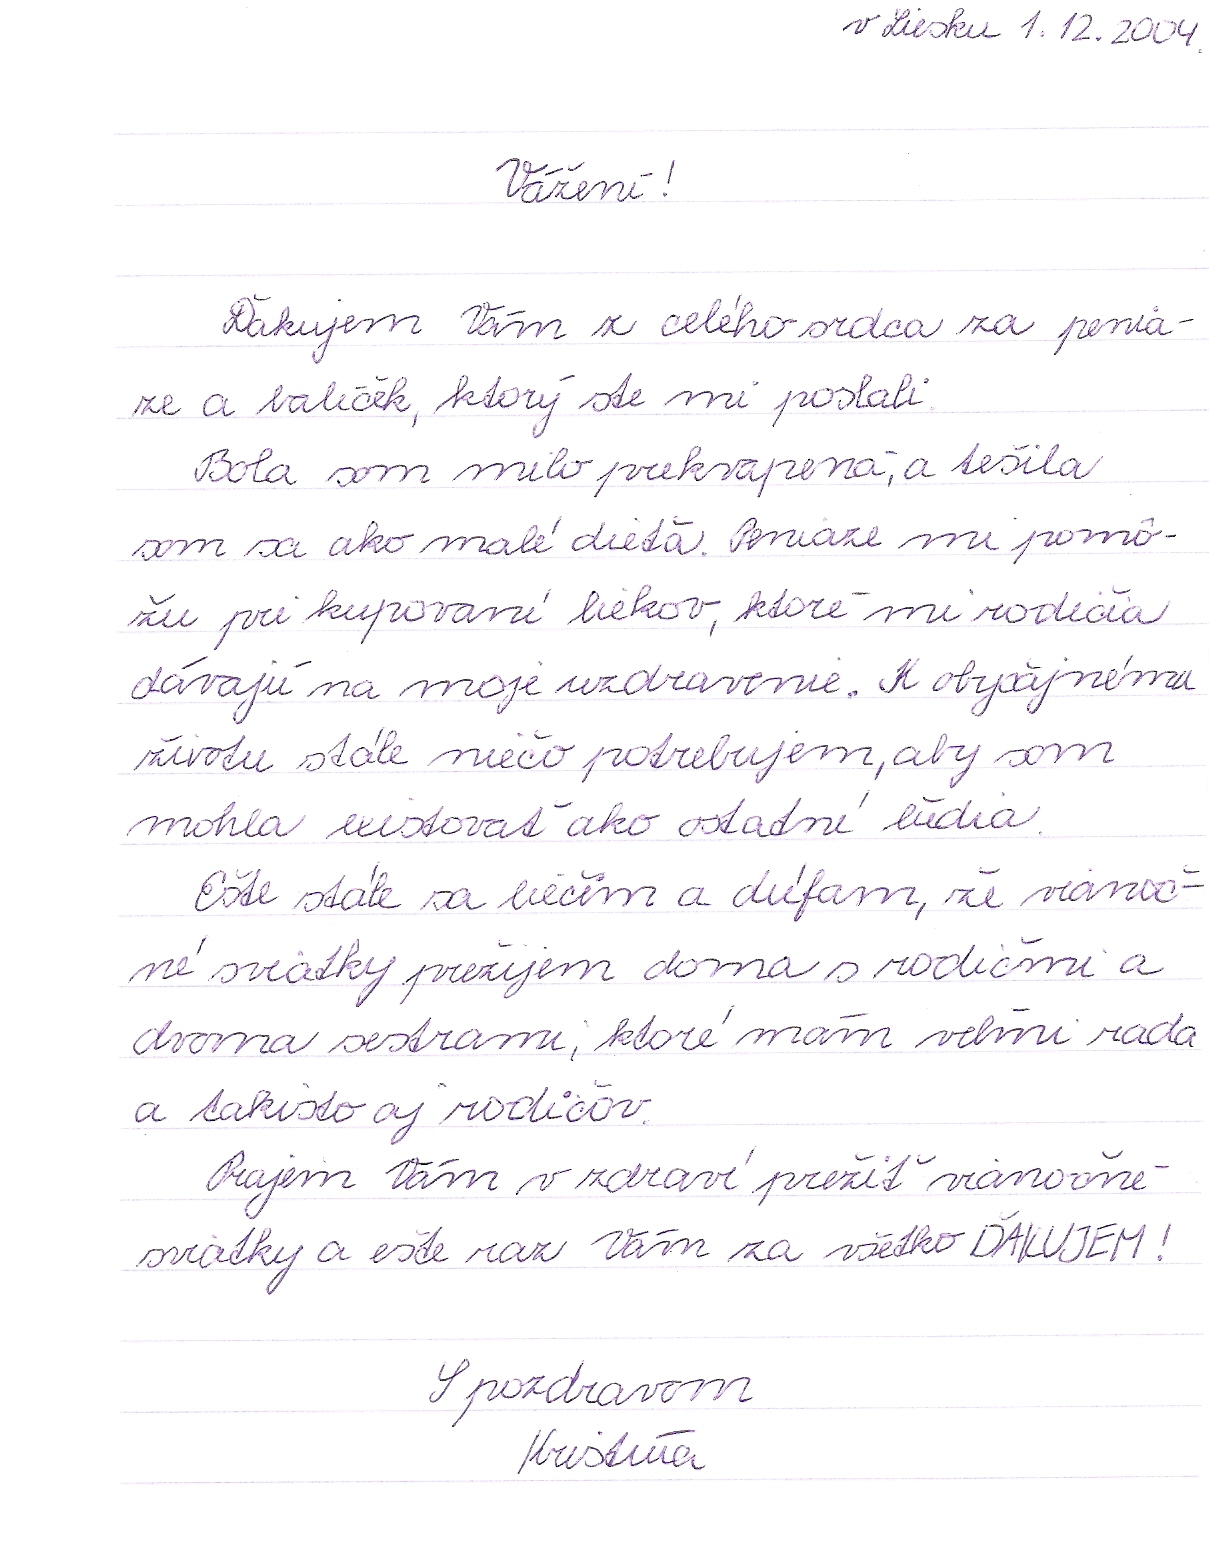 v Liesku 1.12.2004.
Vážení!
Ďakujem Vám z celého srdca za peniá-
ze a balíček, ktorý ste mi poslali.
Bola som milo prekvapená, a tešila
som sa ako malé dieťa. Peniaze mi pomô-
žu pri kupovaní liekov, ktoré mi rodičia
dávajú na moje uzdravenie. K obyčajnému
životu stále niečo potrebujem, aby som
mohla existovať ako ostatní ľudia.
Ešte stále sa liečim a dúfam, že vianoč-
né sviatky prežijem doma s rodičmi a
dvoma sestrami, ktoré mám veľmi rada
a takisto aj rodičov.
Prajem Vám v zdraví prežiť vianočné
sviatky a ešte raz Vám za všetko ĎAKUJEM!
S pozdravom
Kristína